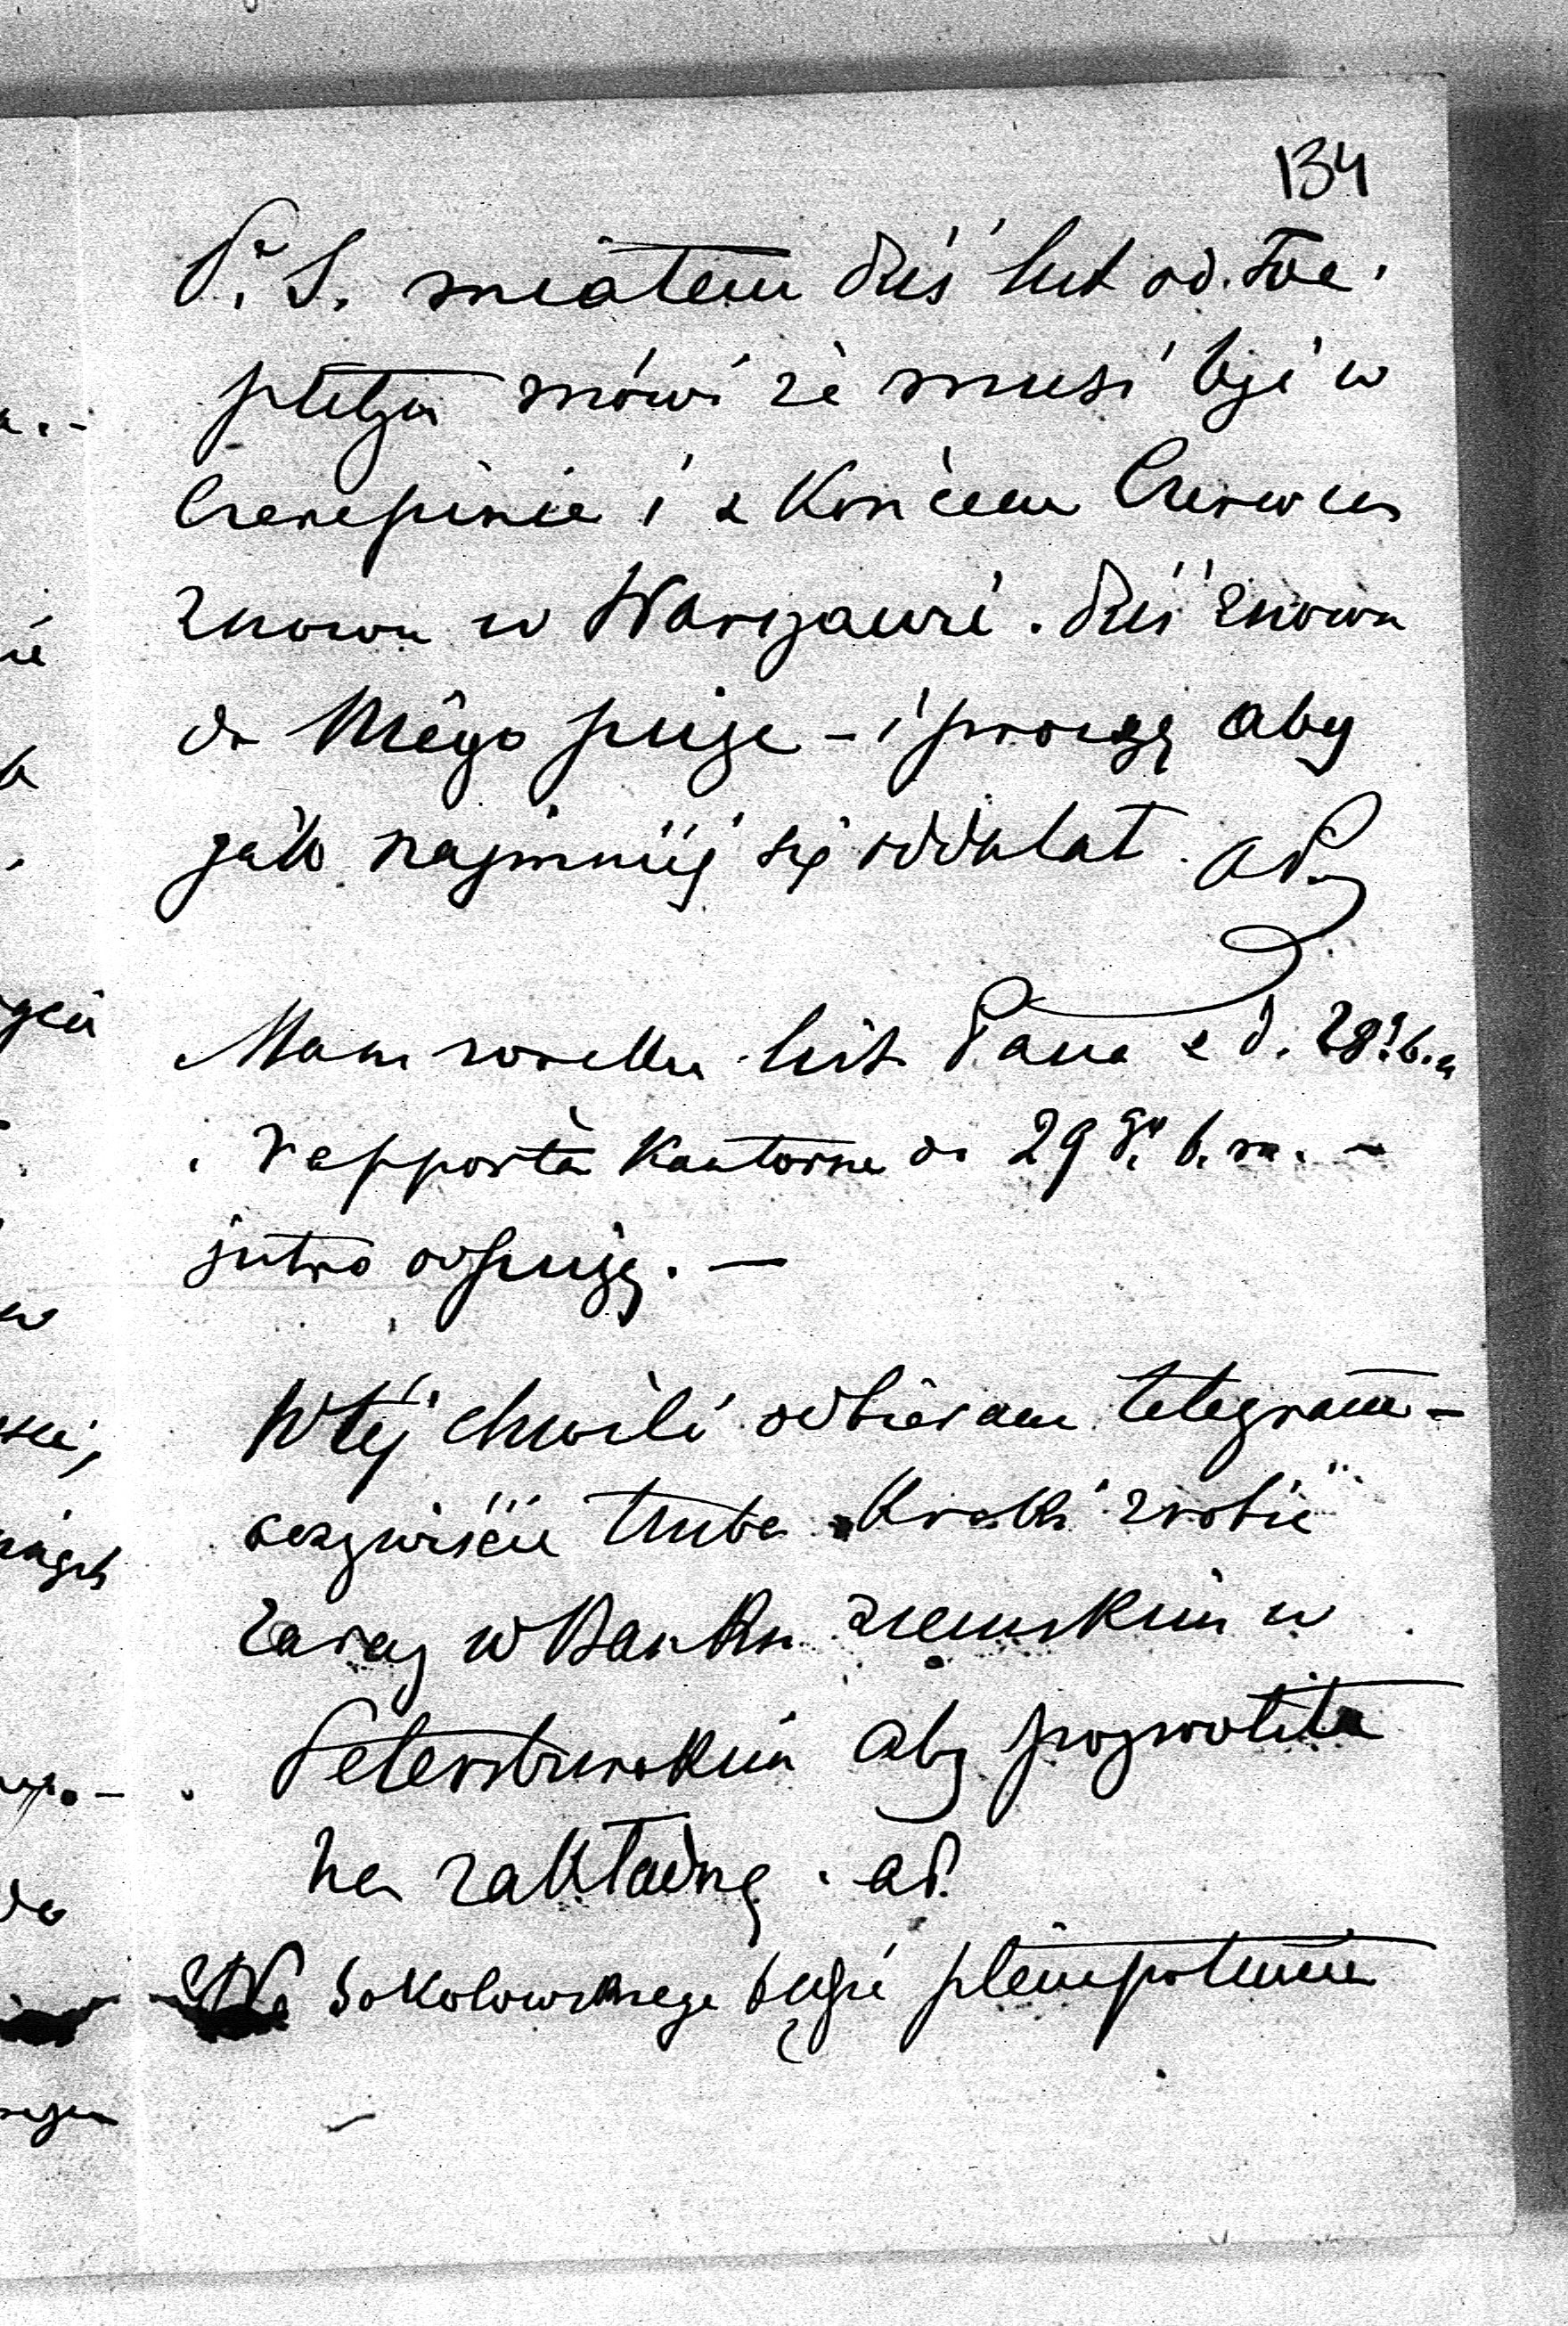 134
P. S. miałem dziś list od Toe.
pletza mówi że musi być w
Czerepinie i z Końcem Czerwca
znowu w Warszawie. Dziś znowu
do Niego piszę – i proszę aby
jak najmniej się oddalał. AP.
Mam list Pana z d. 28º b. m
i rapporta Kantorne do 29 go b. m. –
jutro odpiszę. –
W tej chwili odbieram telegram –
oczywiście trzeba Kroki zrobić
zaraz w Banku ziemskim w
Petersburskim aby pozwolił
na zakładnę. AP.
Na Sokołowskiego będzie plenipotencia